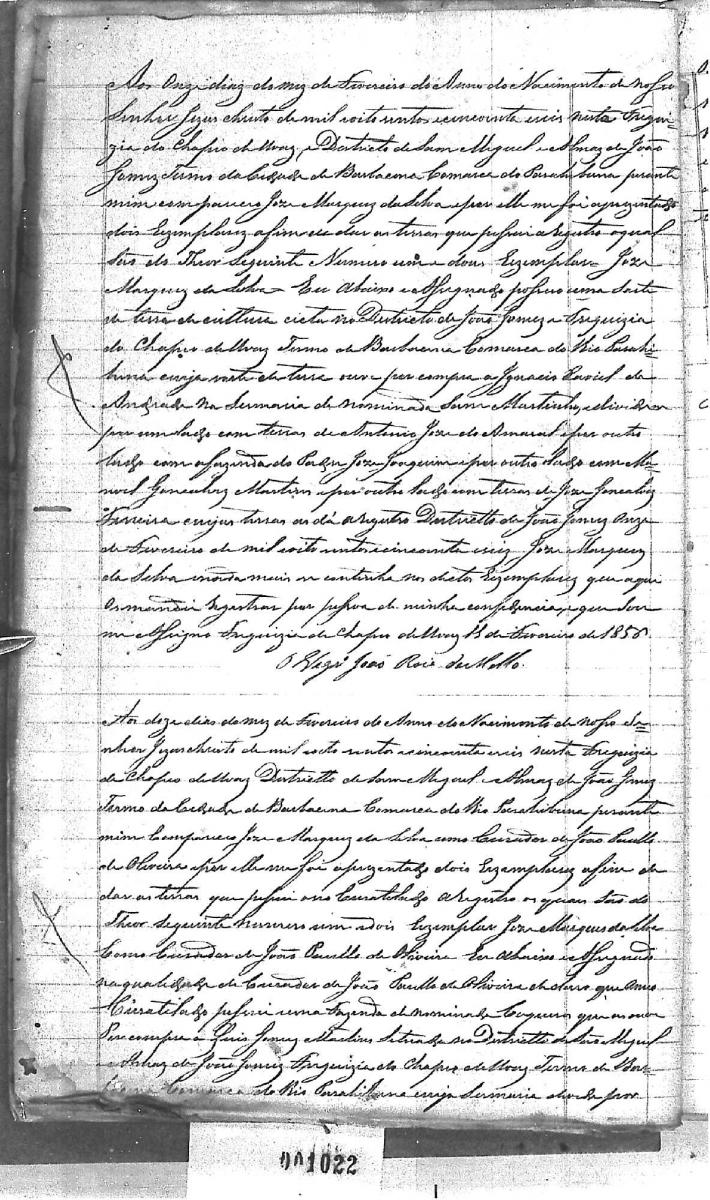 Aos onze dias do mez de Fevereiro do Anno do Nacimento de nosso
Senhor Jezus christo de mil oito sentos e cincoenta e seis nesta Fregue-
zia do Chapeo de Uvas, e Destricto de Sam Miguel e Almas de João
Gomez Termo da Cidade de Barbacena Comarca do Parahibuna perante
mim compareceo Joze Marquez da Silva e por elle me foi aprezentado
dois Exzemplares afim de dar as terras que possui a registro o qual
São do Theor Seguinte Numero um e dous Exzemplar Joze
Marquez da Silva Eu Abaixo e Assignado possuo uma sorte
de terra de cultura cita no Destricto de João Gomez a Freguizia
do Chapeo de Uvas Termo de Barbacena Comarca do Rio Parahi-
buna cuja sorte de terra ouve por compra a Ignacio de
Andrada na Sesmaria denominada Sam Martinho, e devide
por um lado com terras de Antonio Joze do Amaral e por outro
lado com a fazenda do Padre Joze Joaquim e por outro lado com Ma-
noel Goncalvez Martins e por outro lado com terras de Joze Goncalvez
Ferreira cujas terras as dá a registro Destricto de João Gomez Onze
de Fevereiro de mil oito sentos e cincoenta e seis Joze Marquez
da Silva e nada mais se continha nos dictos Exzemplares que aqui
os mandei registrar por pessoa de minha confidencia, e que
me Assigno Freguizia de Chapeo de Uvas 11 de Fevereiro de 1856
O Vigrº João Roiz de Mello
Aos doze dias do mez de Fevereiro do Anno do Nacimento de nosso Se-
nhor Jezus christo de mil oito sentos e cincoenta e seis nesta Freguizia
de Chapeo de Uvas Destricto de Sam Miguel e Almas de João Gomez
Termo da Cidade de Barbacena Comarca do Rio Parahibuna perante
mim Compareceo Joze Marquez da Silva como Curador de João Paullo
de Oliveira e por elle me foi aprezentado dois Exzemplares afim de
dar as terras que possui o no Curatelado a registro os quais São do
Theor seguinte numero um e dois Exzemplar Joze Marques da Silva
Como Curador de João Paullo de Oliveira Eu Abaixo e Assignado
na qualidade de Curador de João Paullo de Oliveira declaro que o meo
Curatelado possui uma Fazenda denominada Coqueiros que as ouve
Por compra a Luis Gomez Martins Setuada no Destricto de Sam Miguel
e Almas de João Gomez Freguizia do Chapeo de Uvas Termo de Bar-
Comarca do Rio Parahibuna cuja Sesmaria devide por
001022